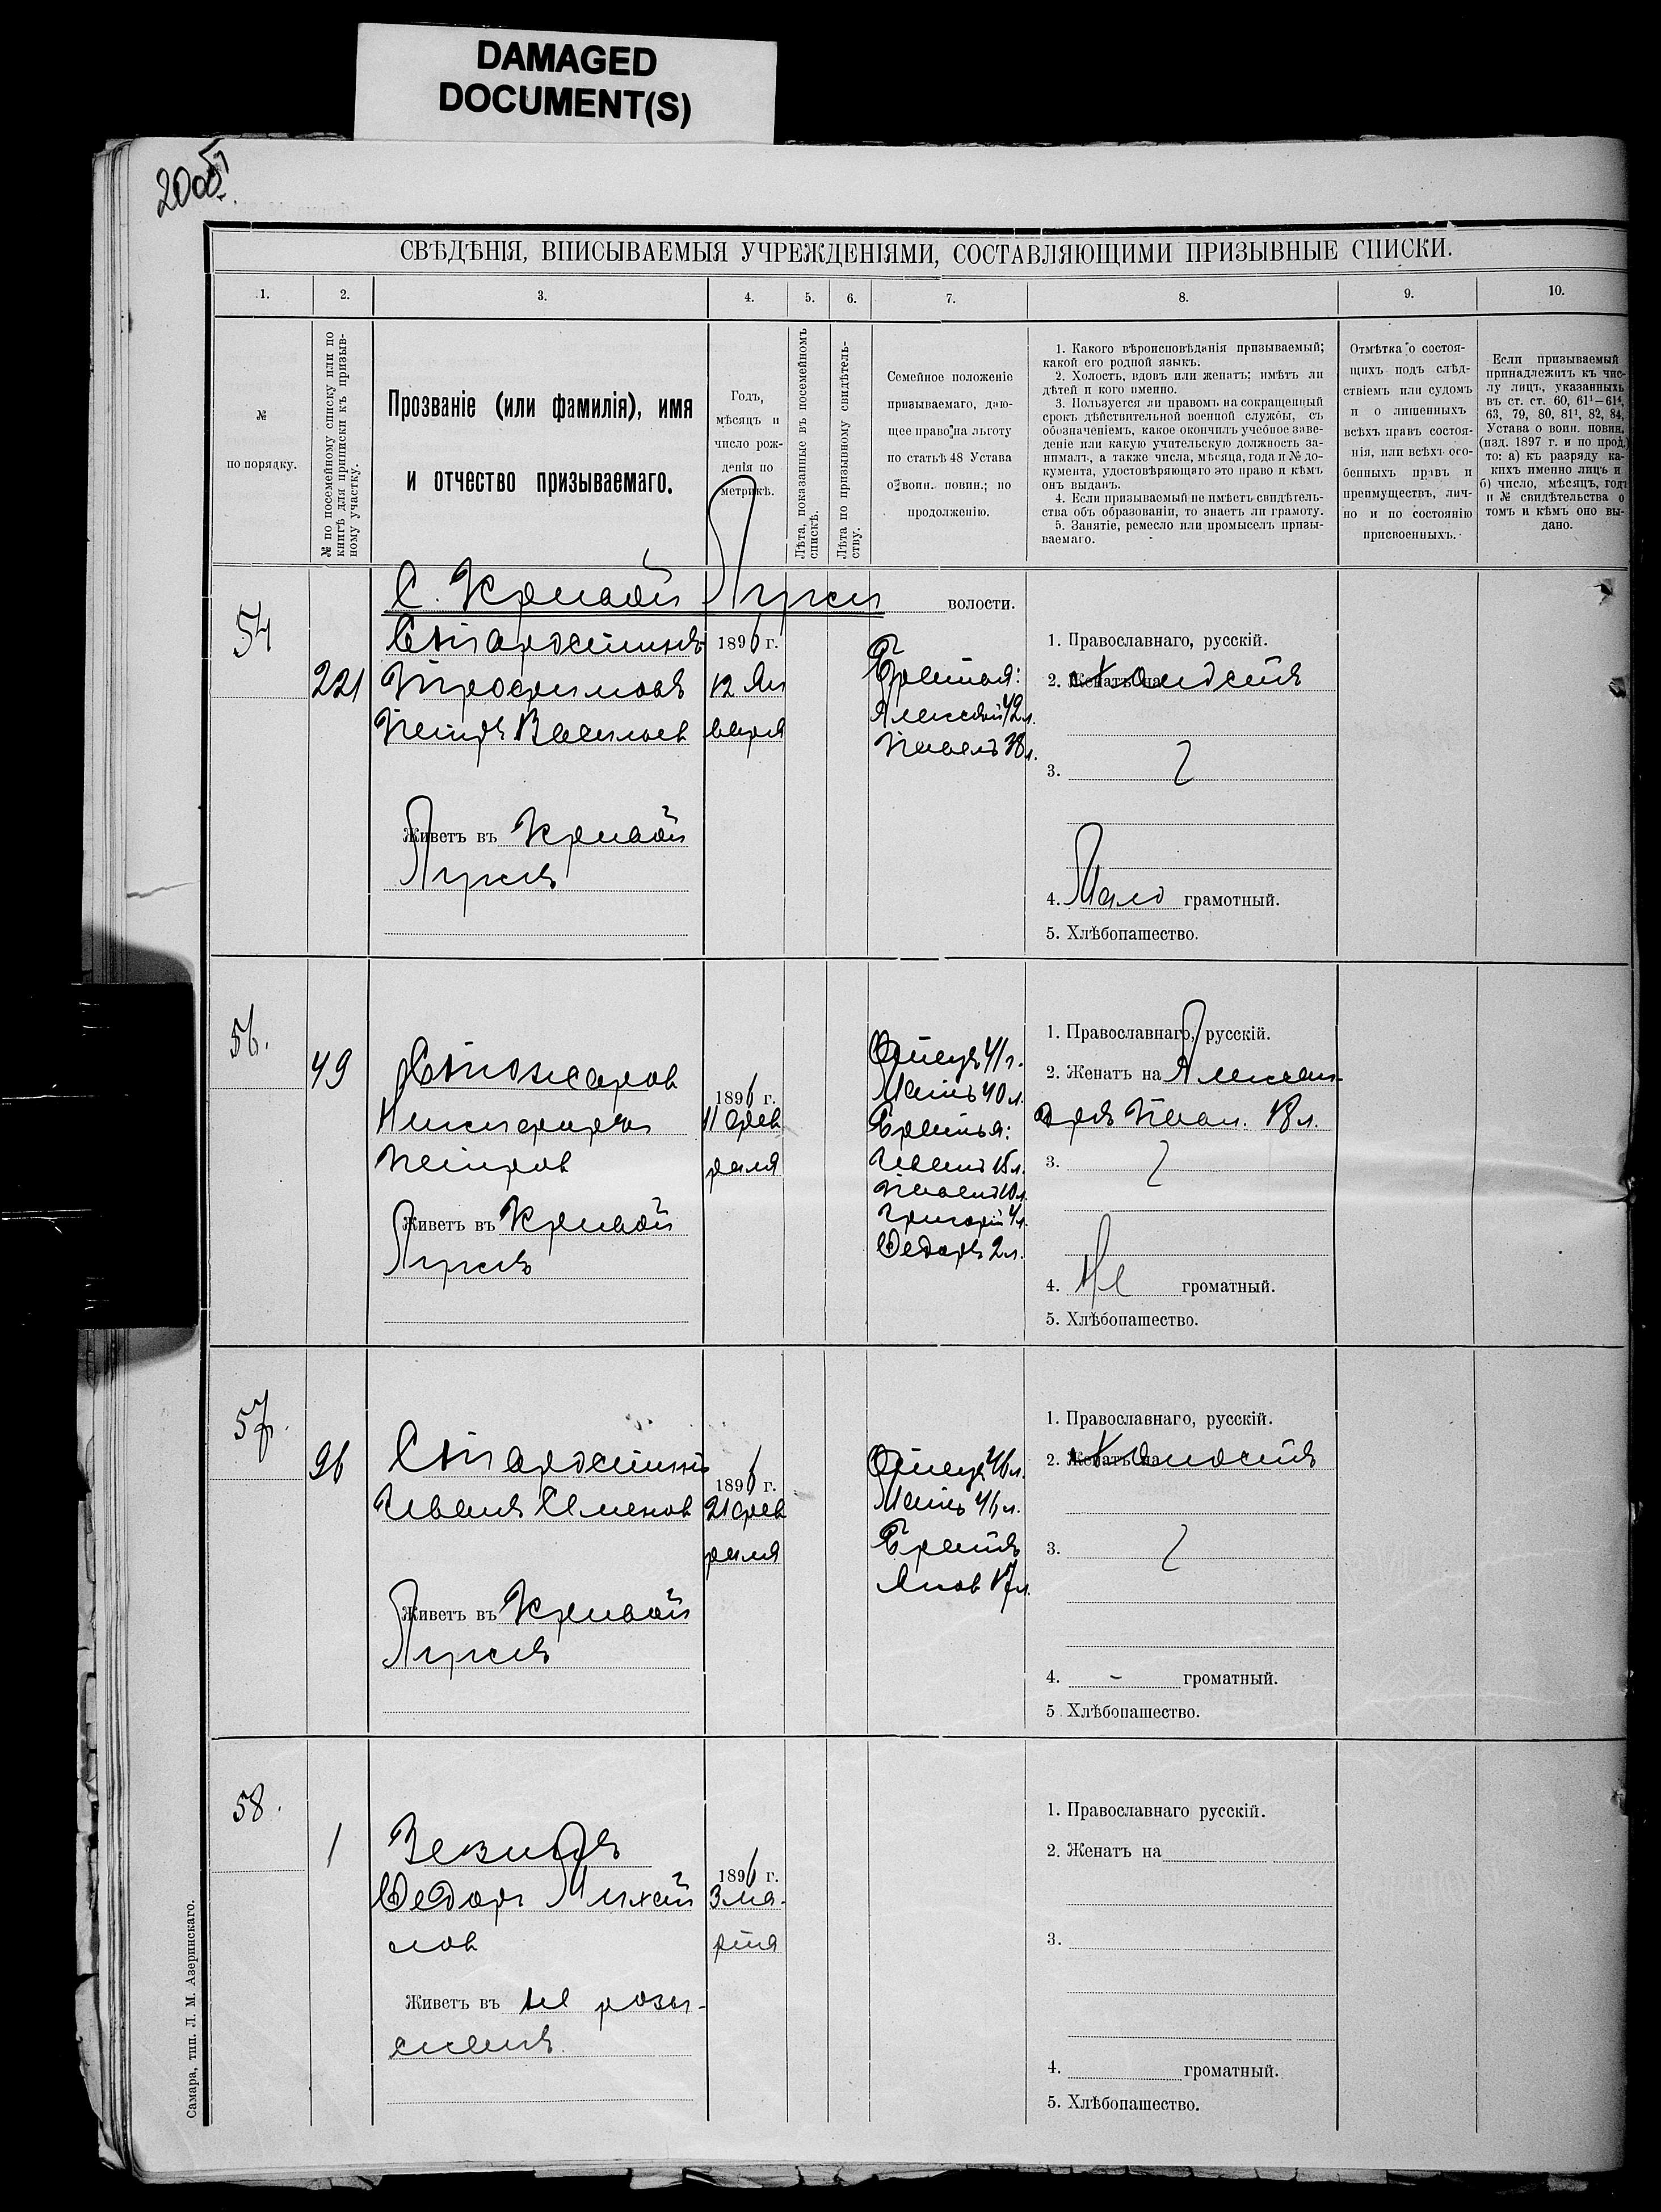 DAMAGED
DOCUMENT(S)
200об.
СВѢДѢНІЯ, ВПИСЫВАЕМЫЯ УЧРЕЖДЕНІЯМИ, СОСТАВЛЯЮЩИМИ ПРИЗЫВНЫЕ СПИСКИ.
1. 2. 3. 4. 5. 6. 7. 8. 9. 10.
№
по порядку.
№ по посемейному списку или по
книгѣ для приписки къ призыв-
ному участку.
Прозваніе (или фамилія), имя
и отчество призываемаго.
Годъ,
мѣсяцъ и
число рож-
денія по
метрикѣ.
Лѣта, показанные въ посемейномъ
спискѣ.
Лѣта по призывному свидѣтель-
ству.
Семейное положеніе
призываемаго, даю-
щее право на льготу
по статьѣ 48 Устава
о воин. повин.; по
продолженію.
1. Какого вѣроисповѣданія призываемый;
какой его родной языкъ.
2. Холостъ, вдовъ или женатъ; имѣтъ ли
дѣтей и кого именно.
3. Пользуется ли правомъ на сокращенный
срокъ дѣйствительной военной службы, съ
обозначеніемъ, какое окончилъ учебное заве-
деніе или какую учительскую должность за-
нималъ, а также числа, мѣсяца, года и № до-
кумента, удостовѣряющаго это право и кѣмъ
онъ выданъ.
4. Если призываемый не имѣетъ свидѣтель-
ства объ образованіи, то знаетъ ли грамоту.
5. Занятіе, ремесло или промыселъ призы-
ваемаго.
Отмѣтка о состоя-
щихъ подъ слѣд-
ствіемъ или судомъ
и о лишенныхъ
всѣхъ правъ состоя-
нія, или всѣхъ осо-
бенныхъ правъ и
преимуществъ, лич-
но и по состоянію
присвоенныхъ.
Если призываемый
принадлежитъ къ чис-
лу лицъ, указанныхъ
въ ст. ст. 60, 61¹—61⁴,
63, 79, 80, 81¹, 82, 84,
Устава о воин. повин.
(изд. 1897 г. и по прод.)
то: а) къ разряду ка-
кихъ именно лицъ и
б) число, мѣсяцъ, годъ
и № свидѣтельства о
томъ и кѣмъ оно вы-
дано.
С. Кривой Луки волости.
54
221
Трофимовъ
Петръ Васильев
1896 г.
12 Ян
варя
Братья:
Алексѣй 42 л.
Павелъ 38 л.
Живетъ въ Кривой
Лукѣ
1. Православнаго, русскій.
2. Женатъ на Холостъ
3.
4. Мало грамотный.
5. Хлѣбопашество.
56.
49
Стожаров
Никифоръ
Петров
1896 г.
11 фев
раля
Отецъ 41 г.
Мать 40 л.
Братья:
Иванъ 15 л.
Павелъ 10 л.
Григорій 4 л.
Федоръ 2 л.
Живетъ въ Кривой
Лукѣ
1. Православнаго, русскій.
2. Женатъ на Алексан-
дрѣ Павл. 18 л.
3.
4. Не громатный.
5. Хлѣбопашество.
57.
96
Иванъ Семенов
1896 г.
21 фев
раля
Отецъ 46 л.
Мать 46 л.
Братъ
Яков 17 л.
Живетъ въ Кривой
Лукѣ
1. Православнаго, русскій.
2. Женатъ на Холостъ
3.
4. - громатный.
5. Хлѣбопашество.
58.
1
Федоръ Михай
лов
1896 г.
3 ма-
рта
Живетъ въ не розы-
сканъ.
1. Православнаго русскій.
2. Женатъ на
3.
4. громатный.
5. Хлѣбопашество.
Самара, тип. Л. М. Азеринскаго.